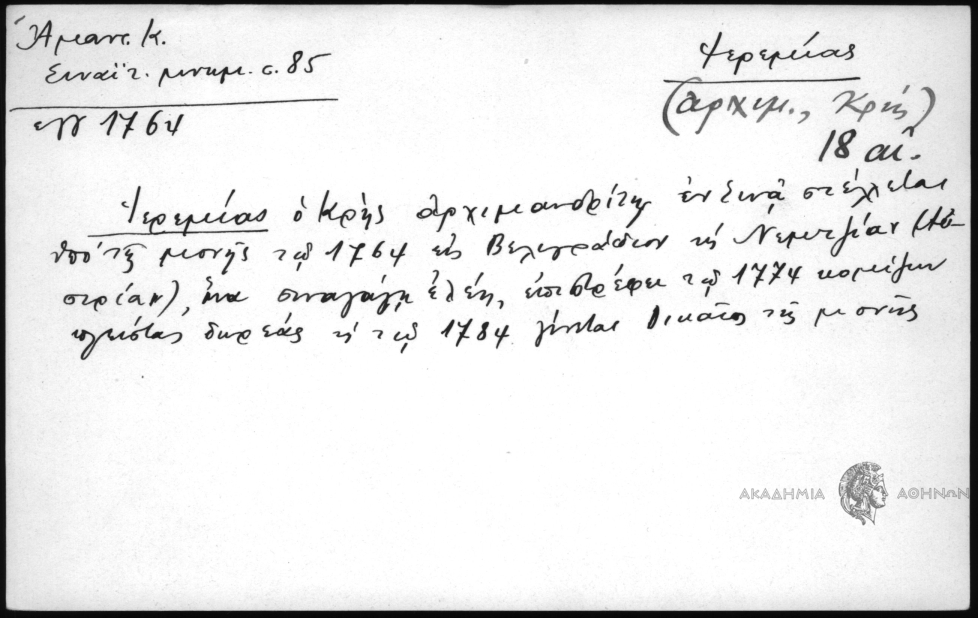 Ἀμαντ. Κ.
Σιναϊτ. μνημ. σ. 85
ἐγγ 1764
Ἱερεμίας
(ἀρχιμ., Κρής)
18 αἰ.
Ἱερεμίας ὁ Κρής ἀρχιμανδρίτης ἐν Σινᾷ στέλλεται
ὑπό τῆς μονῆς τῷ 1764 εἰς Βελιγράδιον καί Νεμιτζίαν (Αὐ-
στρίαν), ἵνα συναγάγῃ ἐλέη, ἐπιστρέφει τῷ 1774 κομίζων
πλείστας δωρεάς καί τῷ 1784 γίνεται Δικαῖος τῆς μονῆς
ΑΚΑΔΗΜΙΑ ΑΘΗΝΩΝ